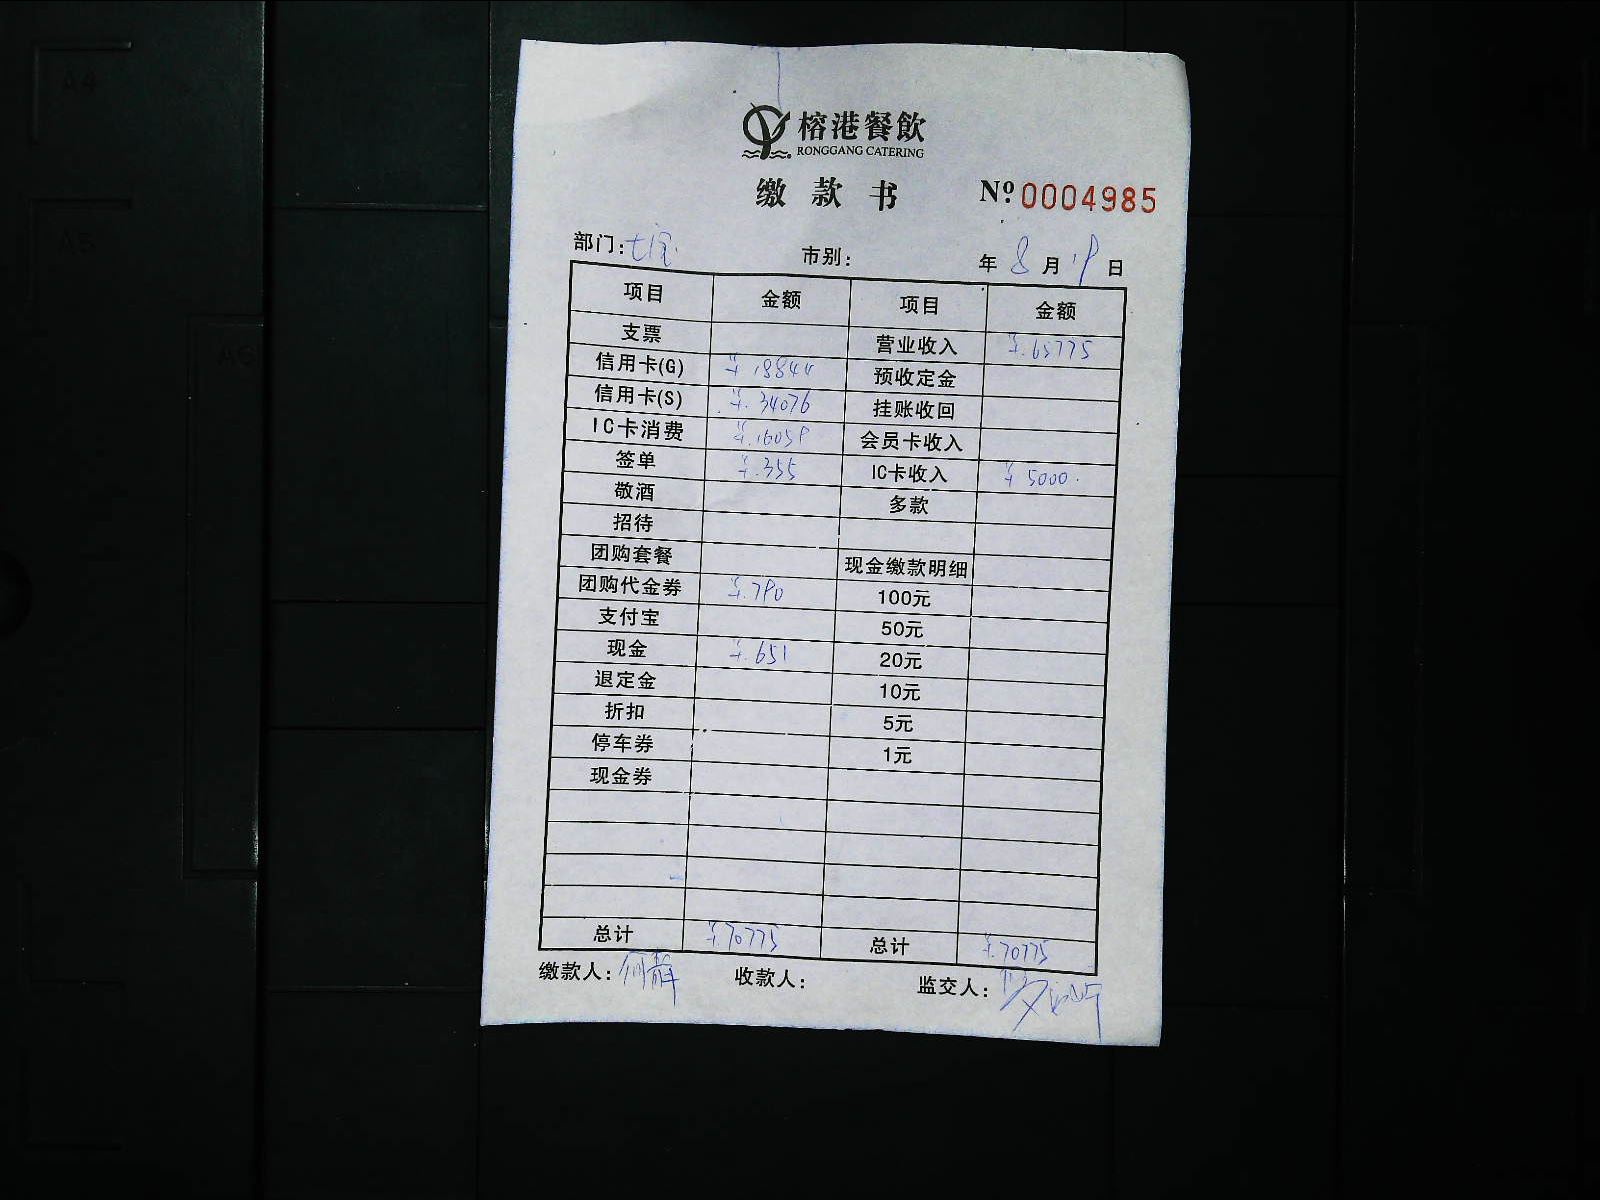 A4
A5
A6
榕港餐飲
RONGGANG CATERING
缴款书 Nº 0004985
部门: 市别: 年 8 月 19 日
项目 金额 项目 金额
支票 营业收入 ¥.65775
信用卡(G) ¥ 18844 预收定金
信用卡(S) ¥. 34076 挂账收回
IC卡消费 ¥.16059 会员卡收入
签单 ¥.355 IC卡收入 ¥ 5000.
敬酒 多款
招待
团购套餐 现金缴款明细
团购代金券 ¥.790 100元
支付宝 50元
现金 ¥.651 20元
退定金 10元
折扣 5元
停车券 1元
现金券
总计 ¥70775 总计 ¥.70775
缴款人: 何静 收款人: 监交人: